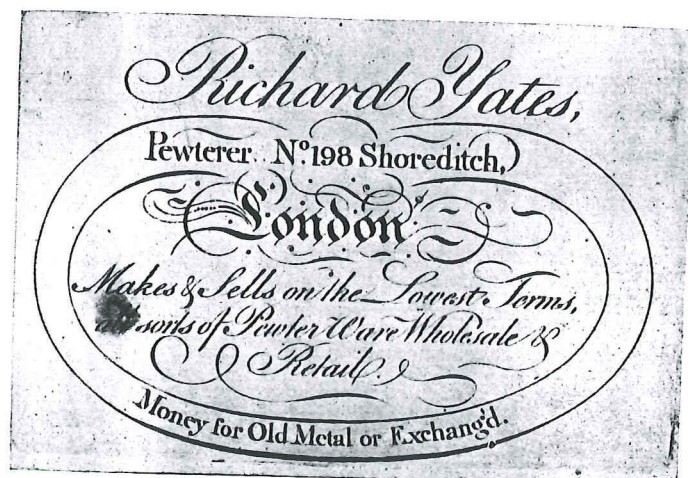 Richard Yates,
Pewterer. Nº. 198 Shoreditch,
London
Makes & Sells on the Lowest Terms,
all sorts of Pewter Ware Wholesale &
Retail.
Money for Old Metal or Exchang'd.